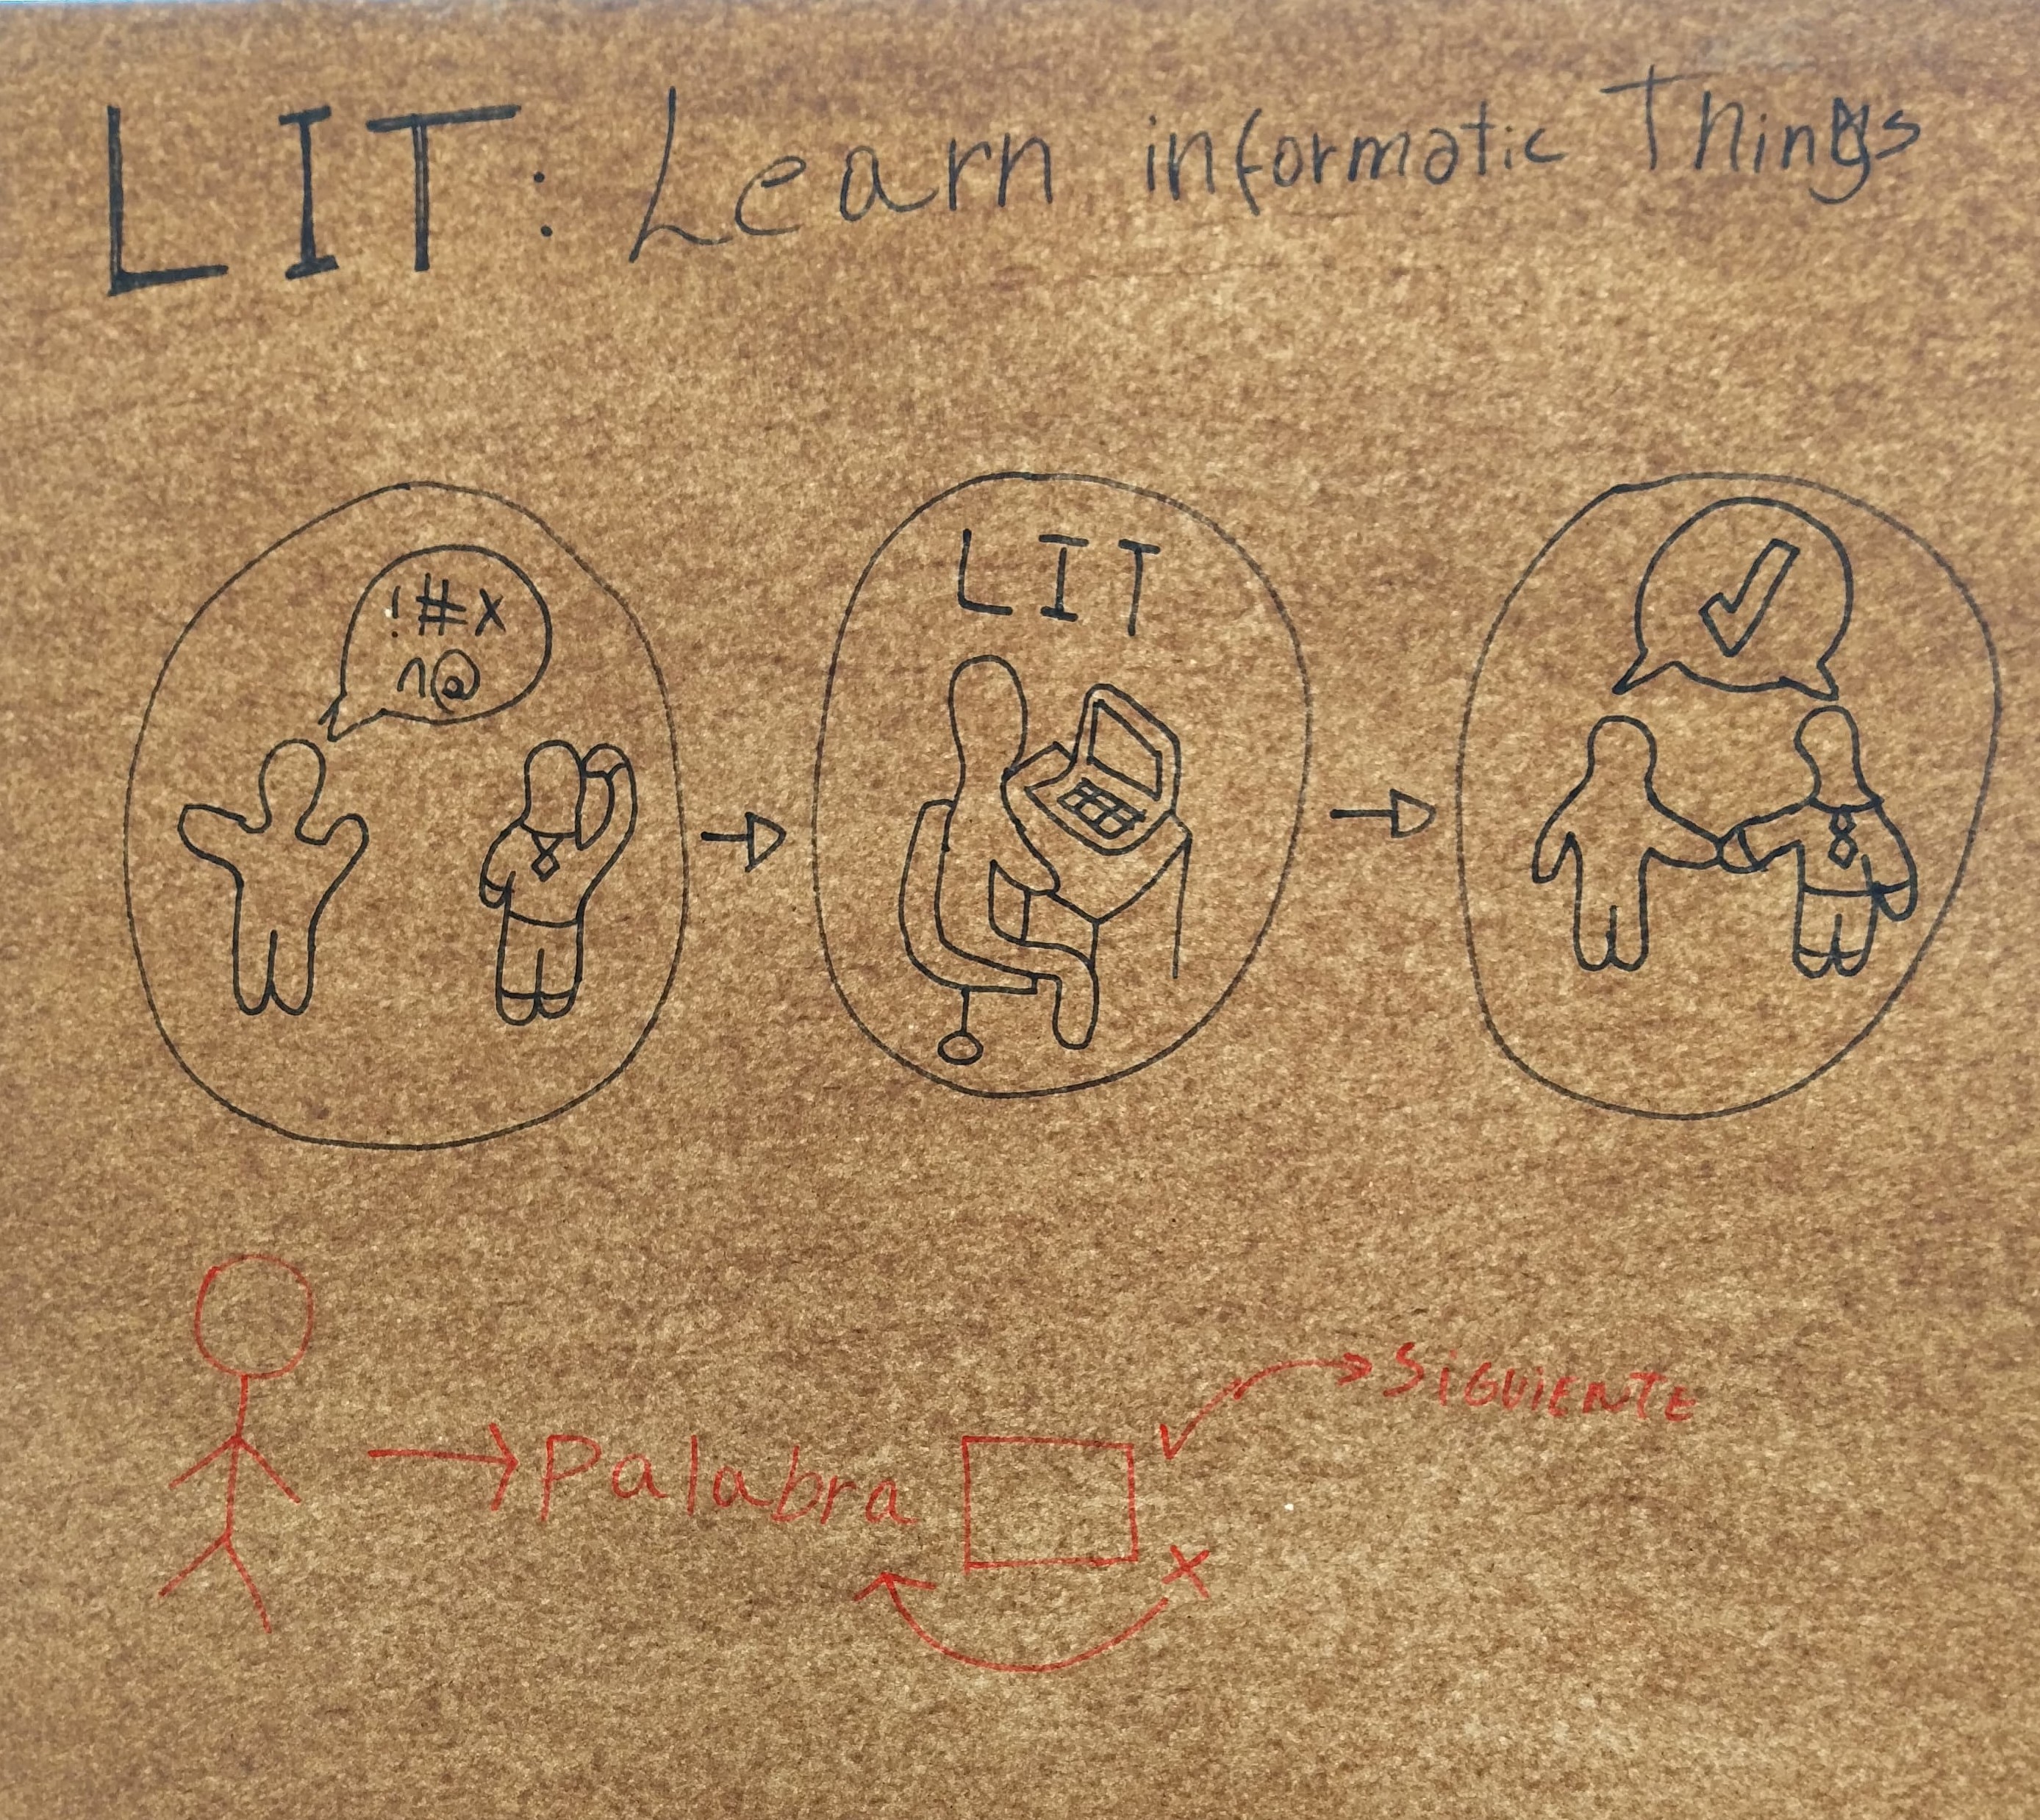 LIT: Learn informatic Things
!#x
^@
LIT
Palabra
SiGUiENTE